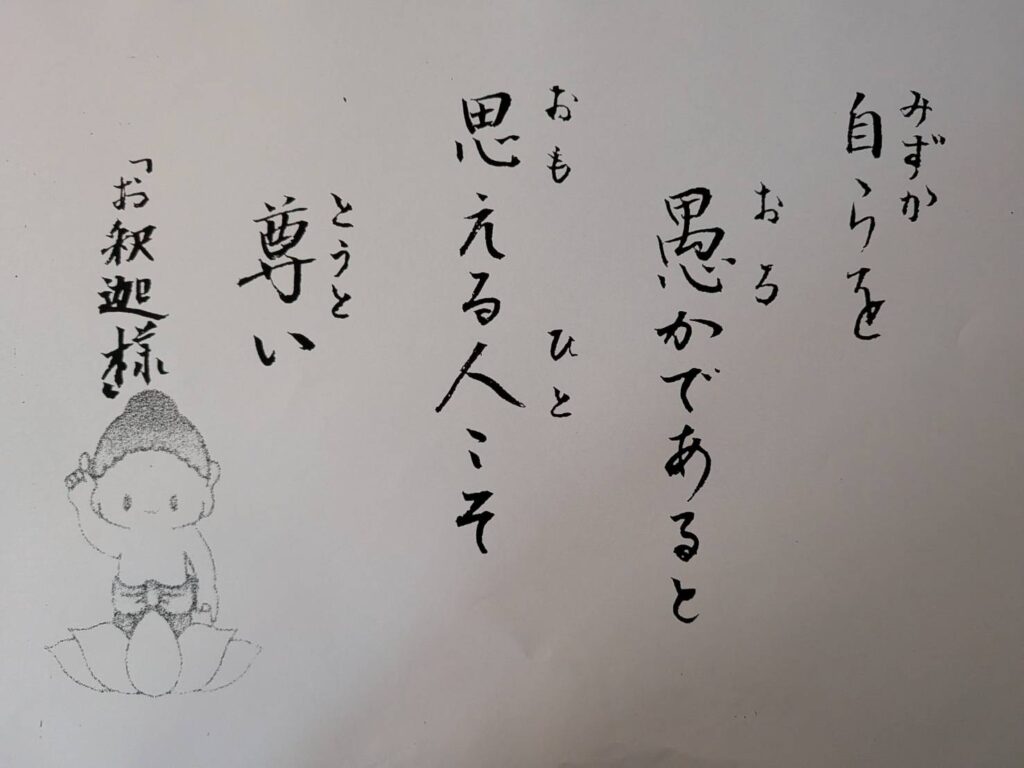 みずか
自らを
おろ
愚かであると
おも ひと
思える人こそ
とうと
尊い
「お釈迦様」